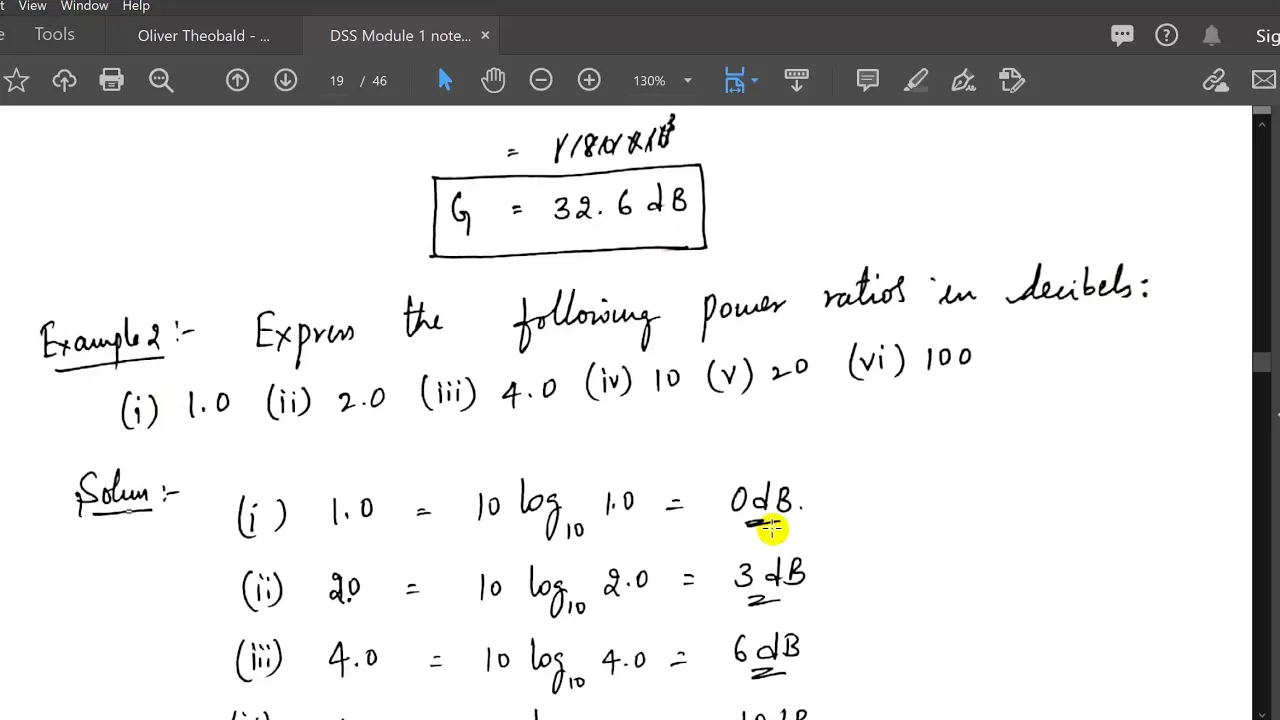 View Window Help
Tools Oliver Theobald - ... DSS Module 1 note... × Sig
19 / 46 130%
=
G = 32.6 dB
Example 2 :- Express the following power ratios in decibels:
(i) 1.0 (ii) 2.0 (iii) 4.0 (iv) 10 (v) 20 (vi) 100
Solun :-
(i) 1.0 = 10 log10 1.0 = 0dB.
(ii) 2.0 = 10 log10 2.0 = 3 dB
(iii) 4.0 = 10 log10 4.0 = 6 dB